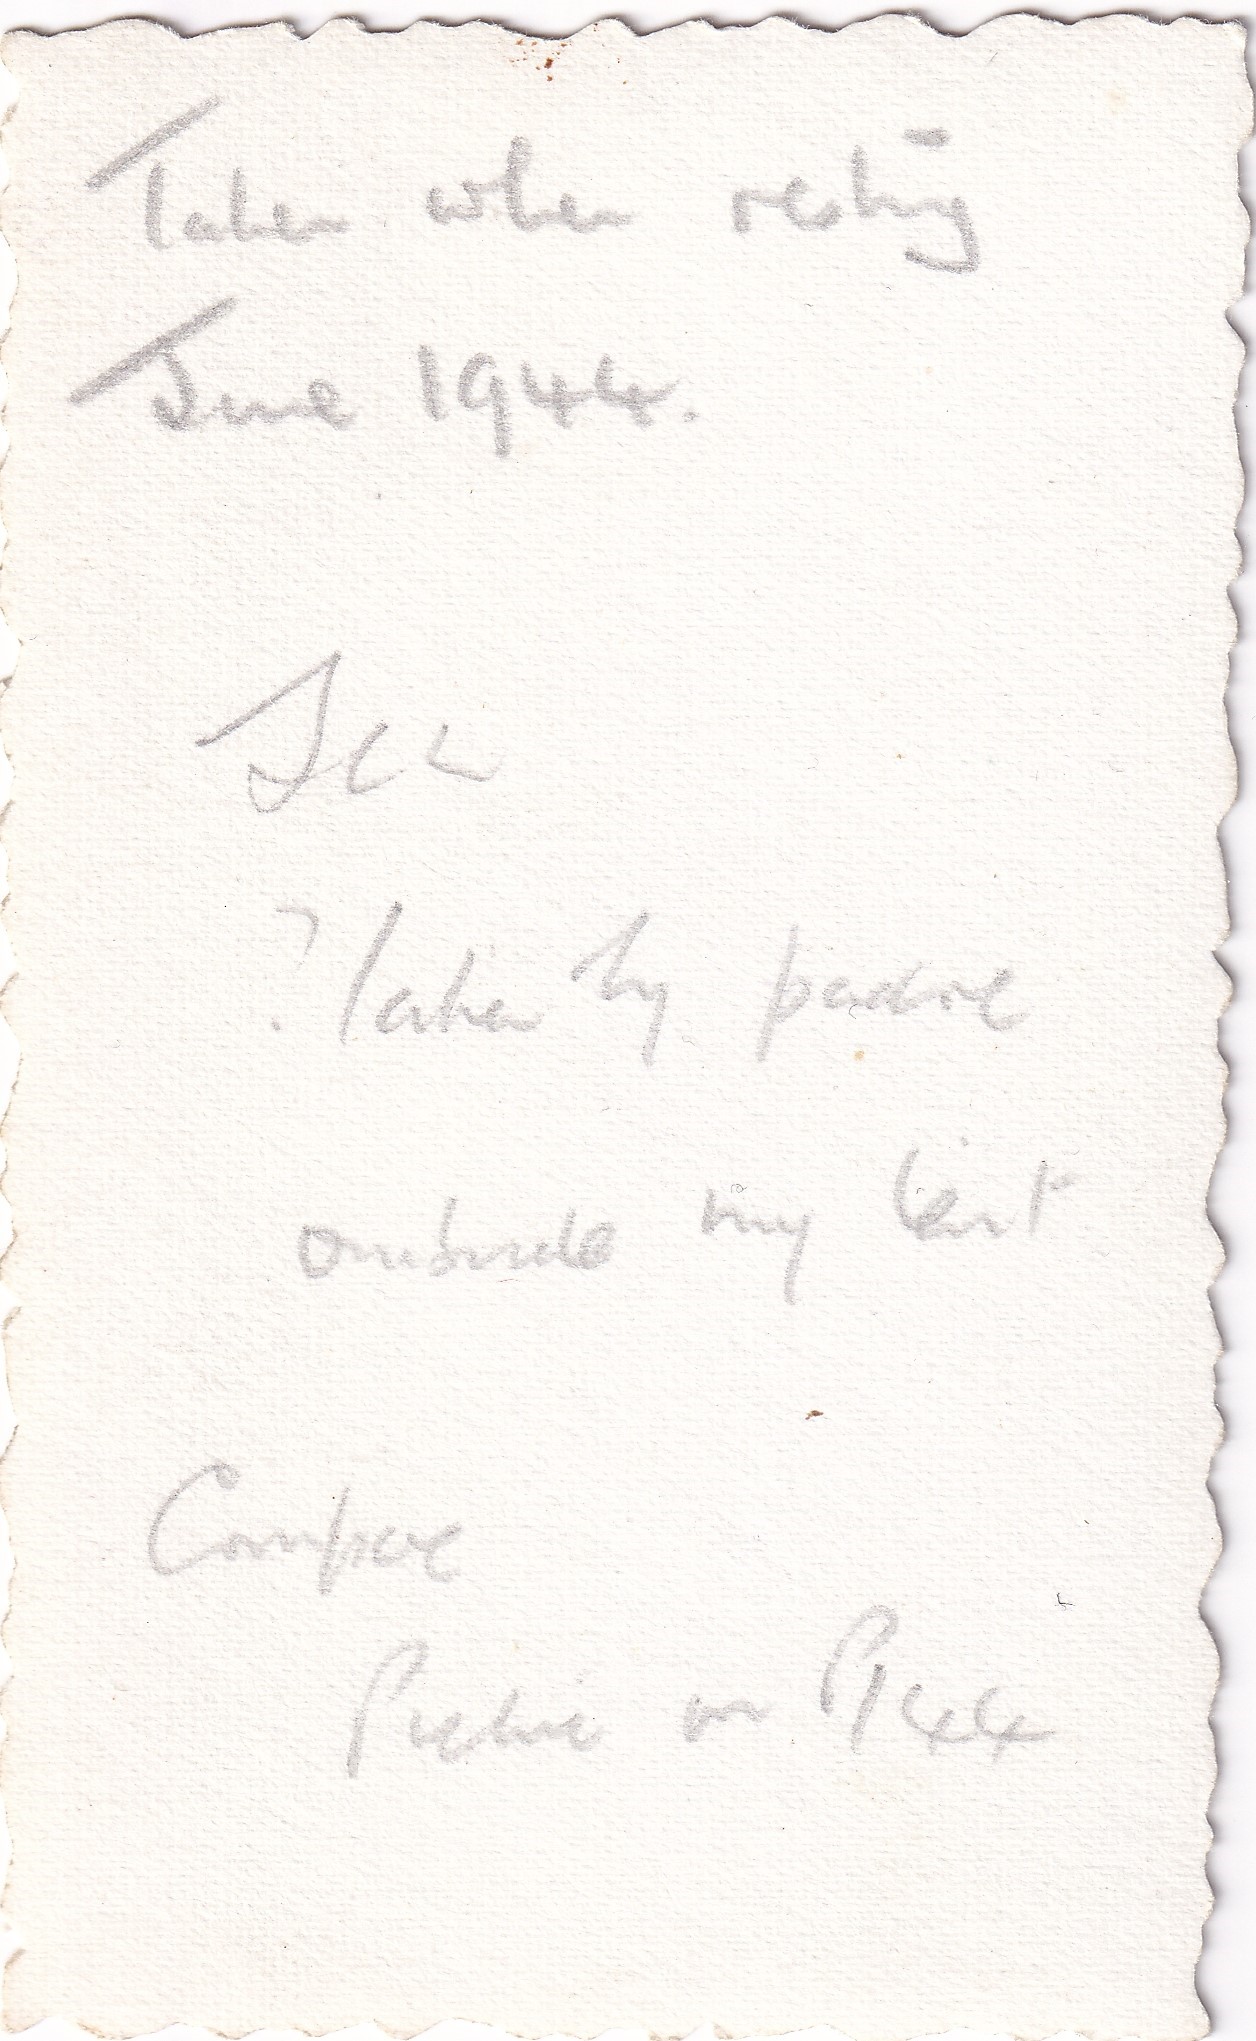 Taken when resting
June 1944.
? Taken by padre
outside my tent
Compare
Picture on P144